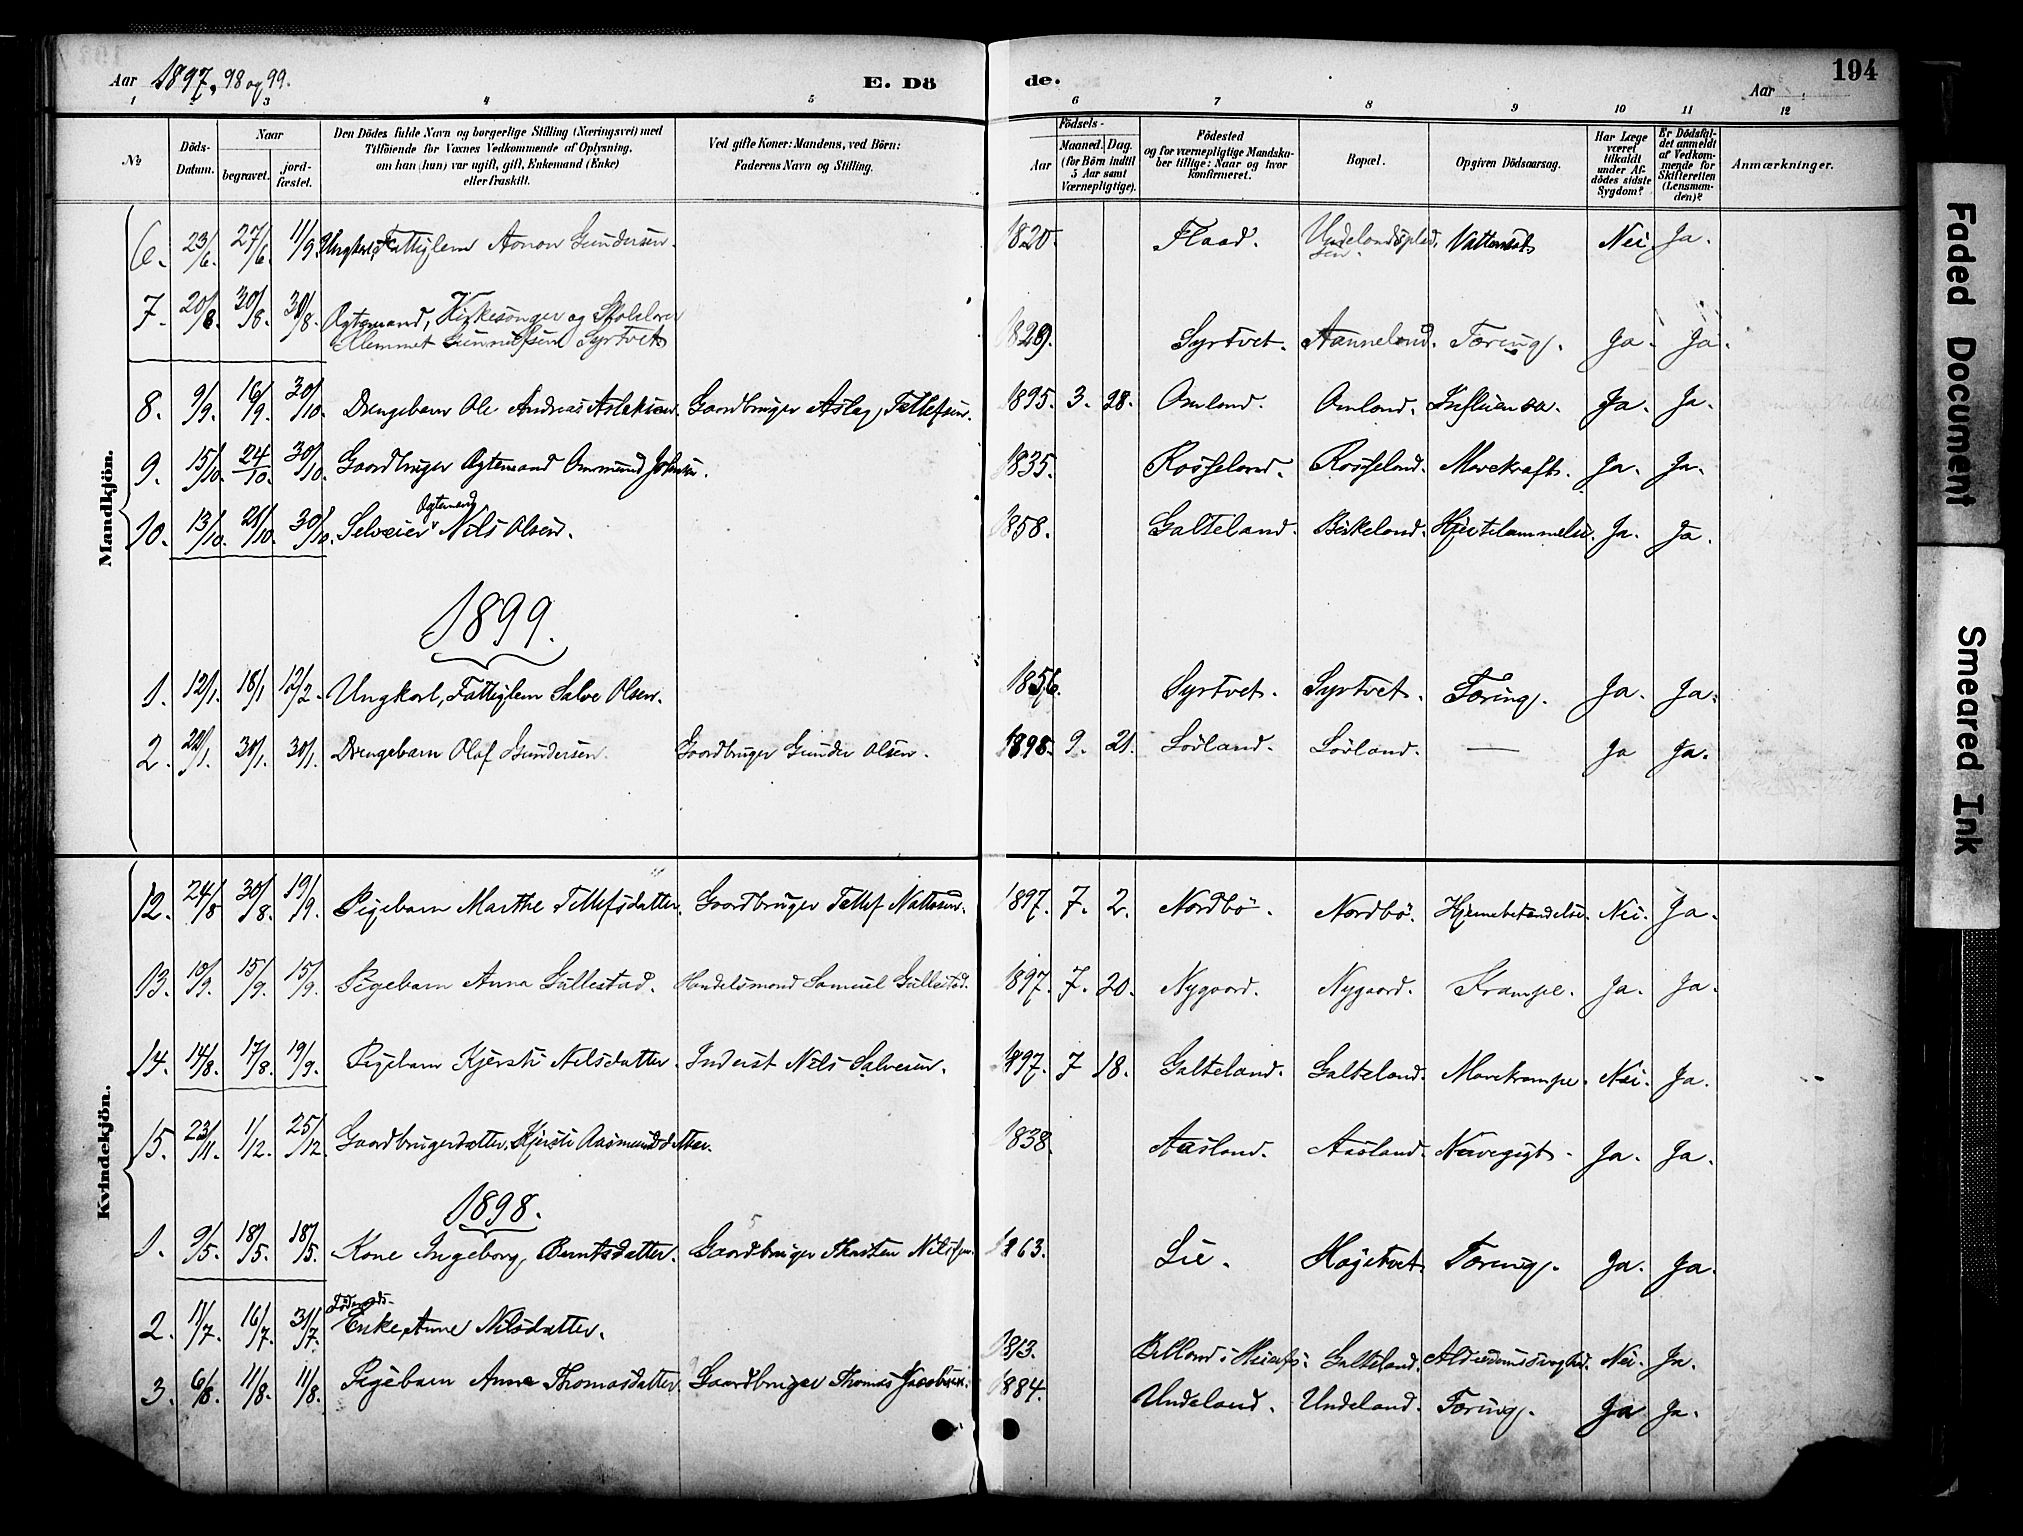 Aar 1897, 98 og 99. E. Dö de. Aar 194
1 2 3 4 5 6 7 8 9 10 11 12
No
Döds-Datum.
Naar
begravet.
jord-fæstet.
Den Dödes fulde Navn og borgerlige Stilling (Næringsvei) med
Tilföiende for Voxnes Vedkommende af Oplysning,
om han (hun) var ugift, gift, Enkemand (Enke)
eller fraskilt.
Ved gifte Koner: Mandens, ved Börn:
Faderens Navn og Stilling.
Födsels-
Aar
Maaned. Dag.
(for Börn indtil
5 Aar samt
Værnepligtige).
Födested
og for værnepligtige Mandska-
ber tillige: Naar og hvor
konfirmeret.
Bopæl.
Opgiven Dödsaarsag.
Har Læge
været
tilkaldt
under Af-
dödes sidste
Sygdom?
Er Dödsfal-
det anmeldt
af Vedkom-
mende for
Skifteretten
(Lensman-
den)?
Anmærkninger.
Mandkjön.
6. 23/6. 27/6. 11/9 Ungkarl, Fattiglem Aanon Gundersen. 1820. Flaad. Undelandsplad. Vattersot. Nei Ja.
sen.
7. 20/8. 30/8. 30/8. Ogtemand, Kirkesonger og Skolelærer
Klemmet Gunnulfsen Syrtvet 1829. Syrtvet. Aanneland. Tæring. Ja. Ja.
8. 9/9. 16/9. 30/10. Drengebarn Ole Andreas Aslaksen Gaardbruger Aslag Tellefsen. 1895. 3. 28. Omland. Omland. Influensa. Ja. Ja.
9. 15/10. 24/10. 30/10. Gaardbruger Ogtemand Ommund Johnsen. 1835. Rosseland. Rosseland. Mavekræft. Ja. Ja.
Ogtemand
10. 13/10. 21/10. 30/10. Selveier Nils Olsen. 1858. Galteland. Birkeland. Hjertelammelse. Ja. Ja.
1899.
1. 12/1. 18/1 12/2. Ungkarl, Fattiglem Salve Olsen. 1856. Syrtvet. Syrtvet. Tæring. Ja. Ja.
2. 22/1. 30/1. 30/1. Drengebarn Olaf Gundersen. Gaardbruger Gunder Olsen. 1898. 9. 21. Lövland. Lövland. — Ja Ja.
Kvindekjön.
12. 24/8 30/8. 19/9. Pigebarn Marthe Tellefsdatter. Gaardbruger Tellef Nattesen. 1897. 7. 2. Nordbö. Nordbö. Hjernebetændelse. Nei. Ja.
13. 10/9. 15/9. 15/9. Pigebarn Anna Gullestad. Handelsmand Samuel Gullestad. 1897. 7. 20. Nygaard. Nygaard. Krampe. Ja. Ja.
14. 14/8. 17/8. 19/9. Pigebarn Kjersti Nilsdatter. Inderst Nils Salvesen. 1897. 7 18. Galteland. Galteland. Mavekrampe. Nei. Ja.
15. 23/11. 1/12. 25/12. Gaardbrugerdatter Kjersti Aasmundsdatter. 1838. Aasland. Aasland. Nervegigt. Ja. Ja.
1898.
1. 9/5. 18/5. 18/5. Kone Ingeborg Berntsdatter. Gaardbruger Thorsten Nilssen. 1863. Lie. Högetvet. Tæring. Ja. Ja.
Föderaads-
2. 11/7. 16/7. 31/7. Enke Anne Nilsdatter. 1813. Galteland. Alderdomssvaghed. Nei. Ja.
3. 6/8. 11/8. 11/8. Pigebarn Anne Thomasdatter. Gaardbruger Thomas Jacobsen. 1884. Undeland. Undeland. Tæring. Ja Ja.
Faded Document
Smeared Ink